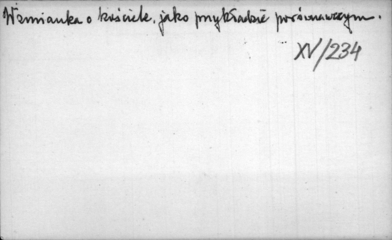 Wzmianka o kościele, jako przykładzie porównawczym.
XV/234